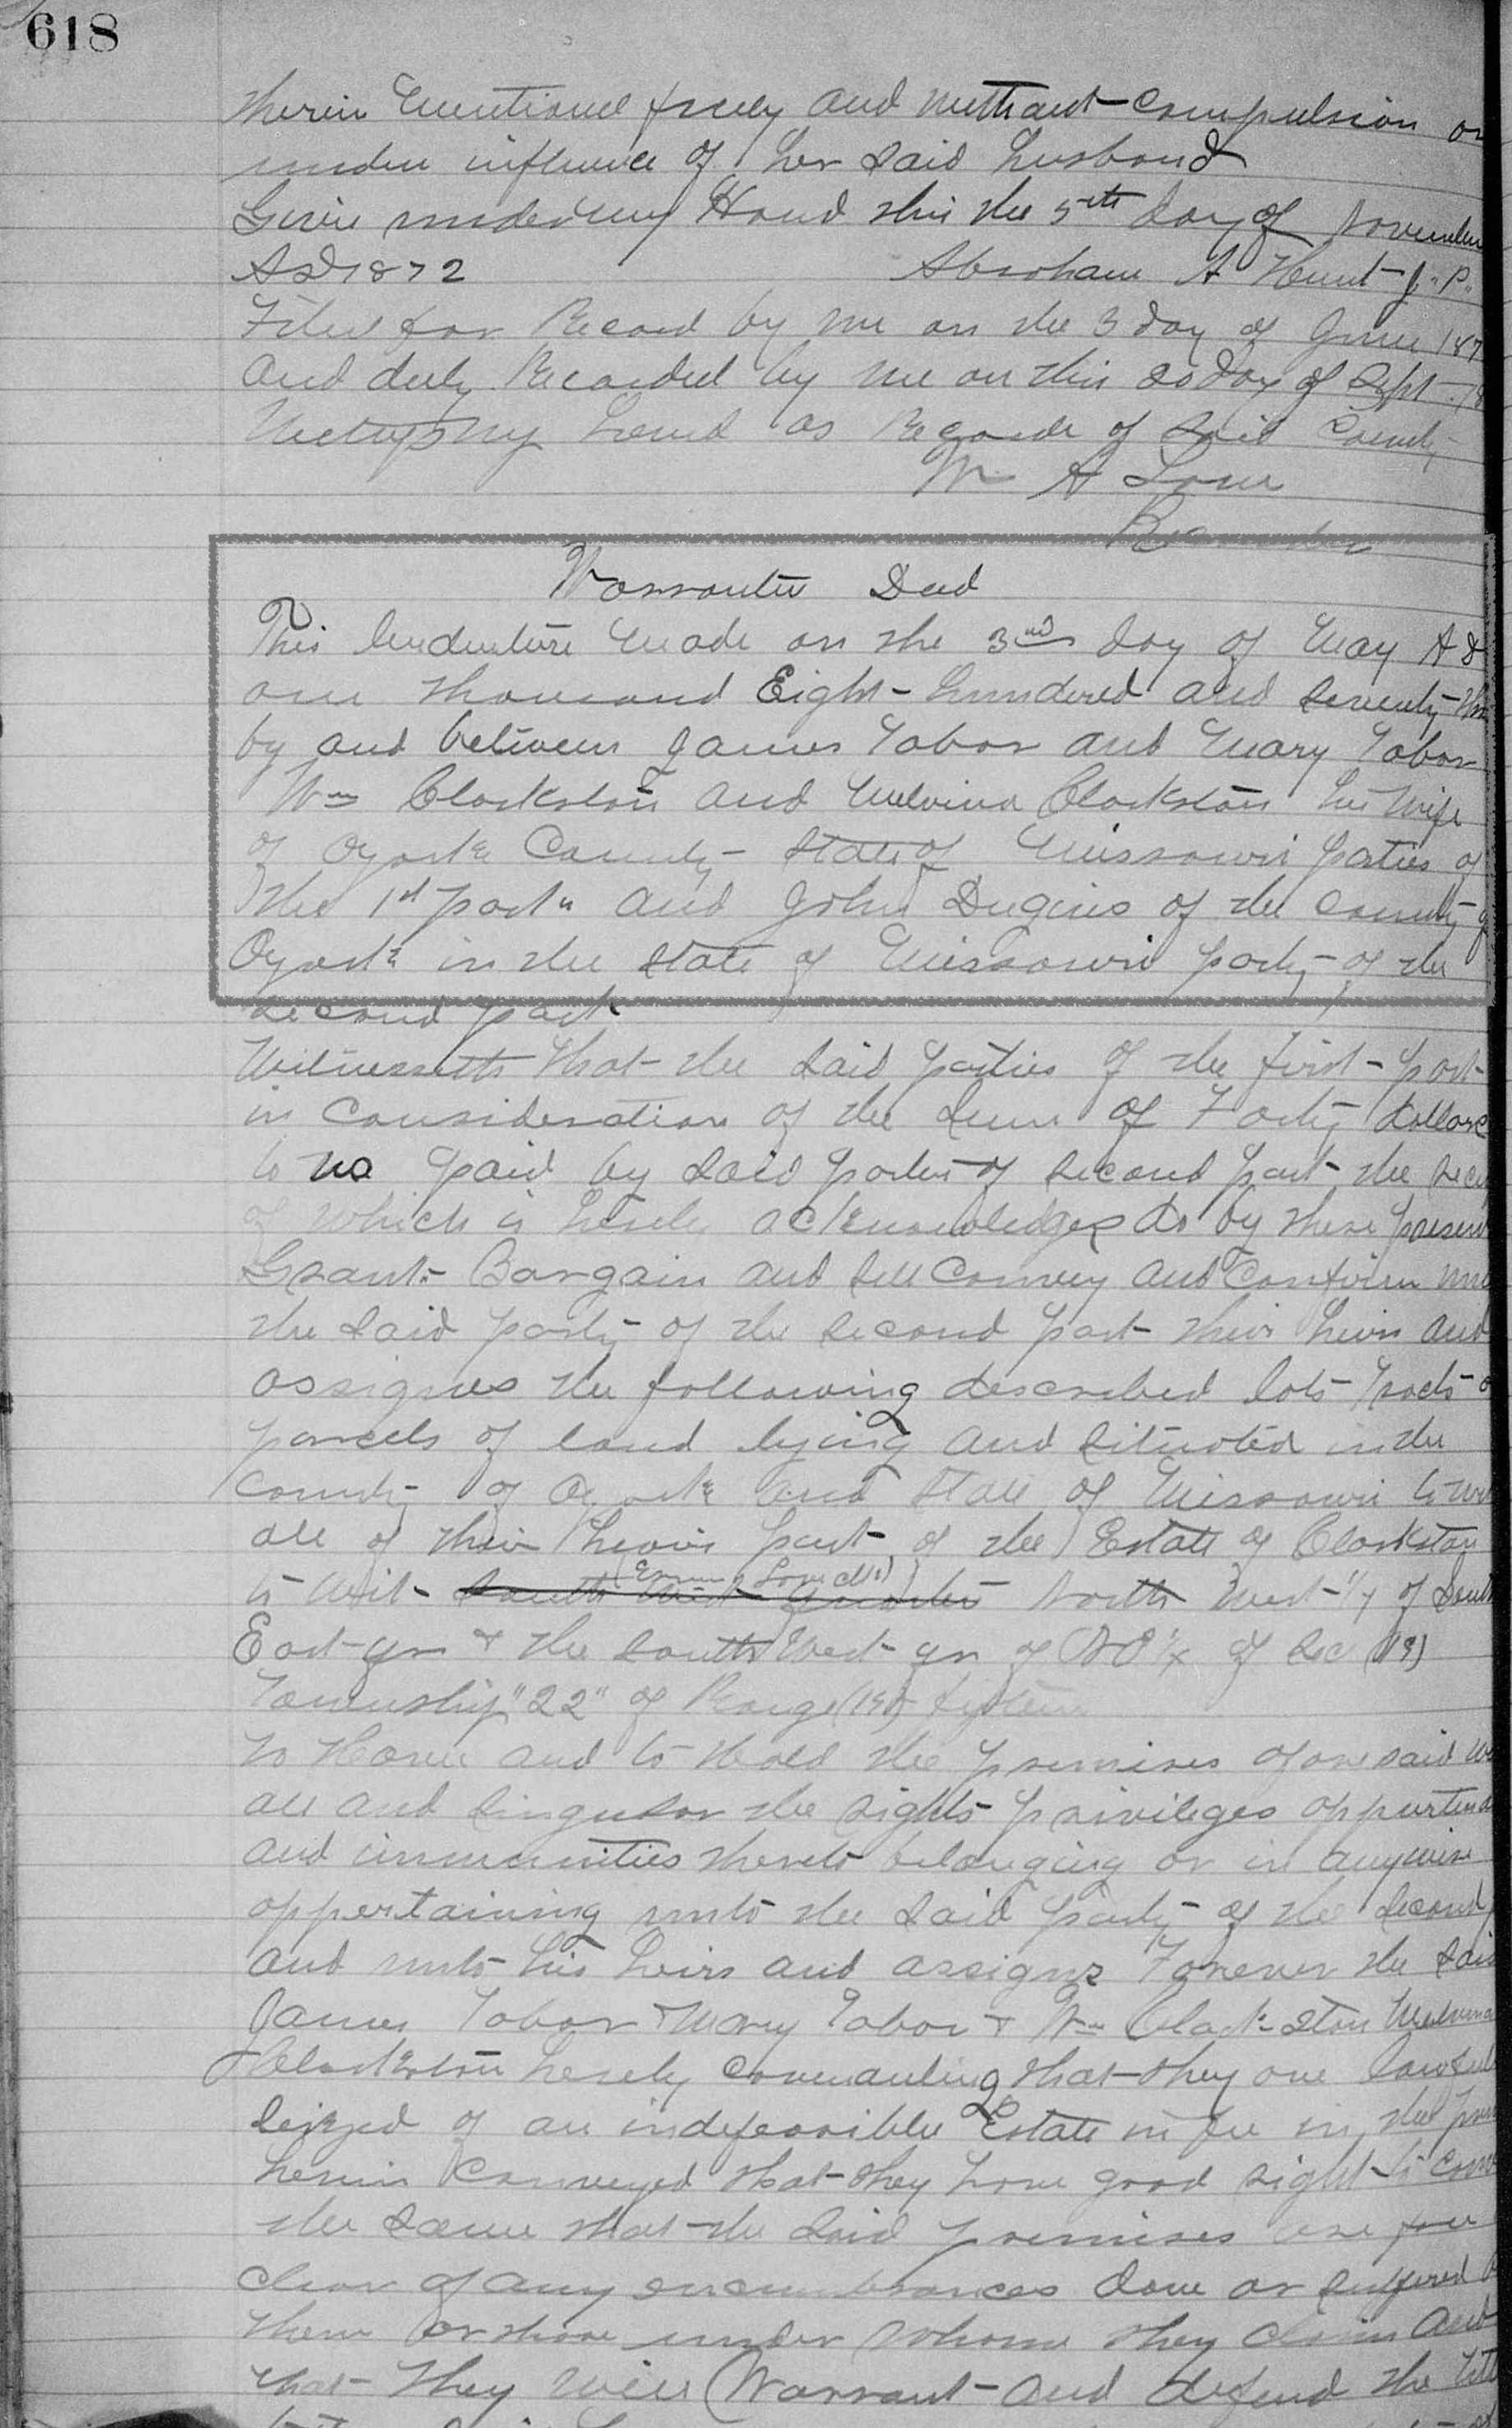 618
therein mentioned freely and without compulsion or
under influence of her said husband
Given under my Hand this the 5th day of November
AD 1872 Abraham A Hunt J. P.
Filed for Record by me on the 3 day of June 187
and duly Recorded by me on this 20 day of Sept
my hand as Recorder of said County
Wm A Love
Recorder
Warrantee Deed
This Indenture made on the 3rd day of May AD
one thousand Eight hundered and seventy
by and between James Tabor and Mary Tabor
Wm Clarkston and Melvina Clarkston his wife
of Ozark County State of Missouri parties of
the 1st part and John Dugins of the County of
Ozark in the State of Missouri party of the
second part
Witnesseth that the said parties of the first part
in consideration of the sum of Forty dollars
to us paid by said parties of second part the
of which is hereby acknowledged do by these
Grant Bargain and sell convey and Confirm
the said party of the second part their heirs and
assignes the following described lots tracts
parcels of land lying and situated in the
County of Ozark and State of Missouri to
all of their heirs part of the Estate of Clarkston
to wit South West quarter North West 1/4 of South
East qr & the South West qr of NE 1/4 of Sec (19)
Township "22" of Range (15)
To Have and to Hold the premises aforesaid
all and singular the rights privileges
and immunities thereto belonging or in anywise
appertaining unto the said party of the second
and unto his heirs and assigns Forever the said
James Tabor & Mary Tabor & Wm Clarkston Melvina
Clarkston hereby covenanting that they are
seized of an indefeasible Estate in fee in the
herein conveyed that they have good right to
the same that the said premises are free
clear of any encumbrances done or suffered
them or those under whom they claim and
that they will Warrant and defend the